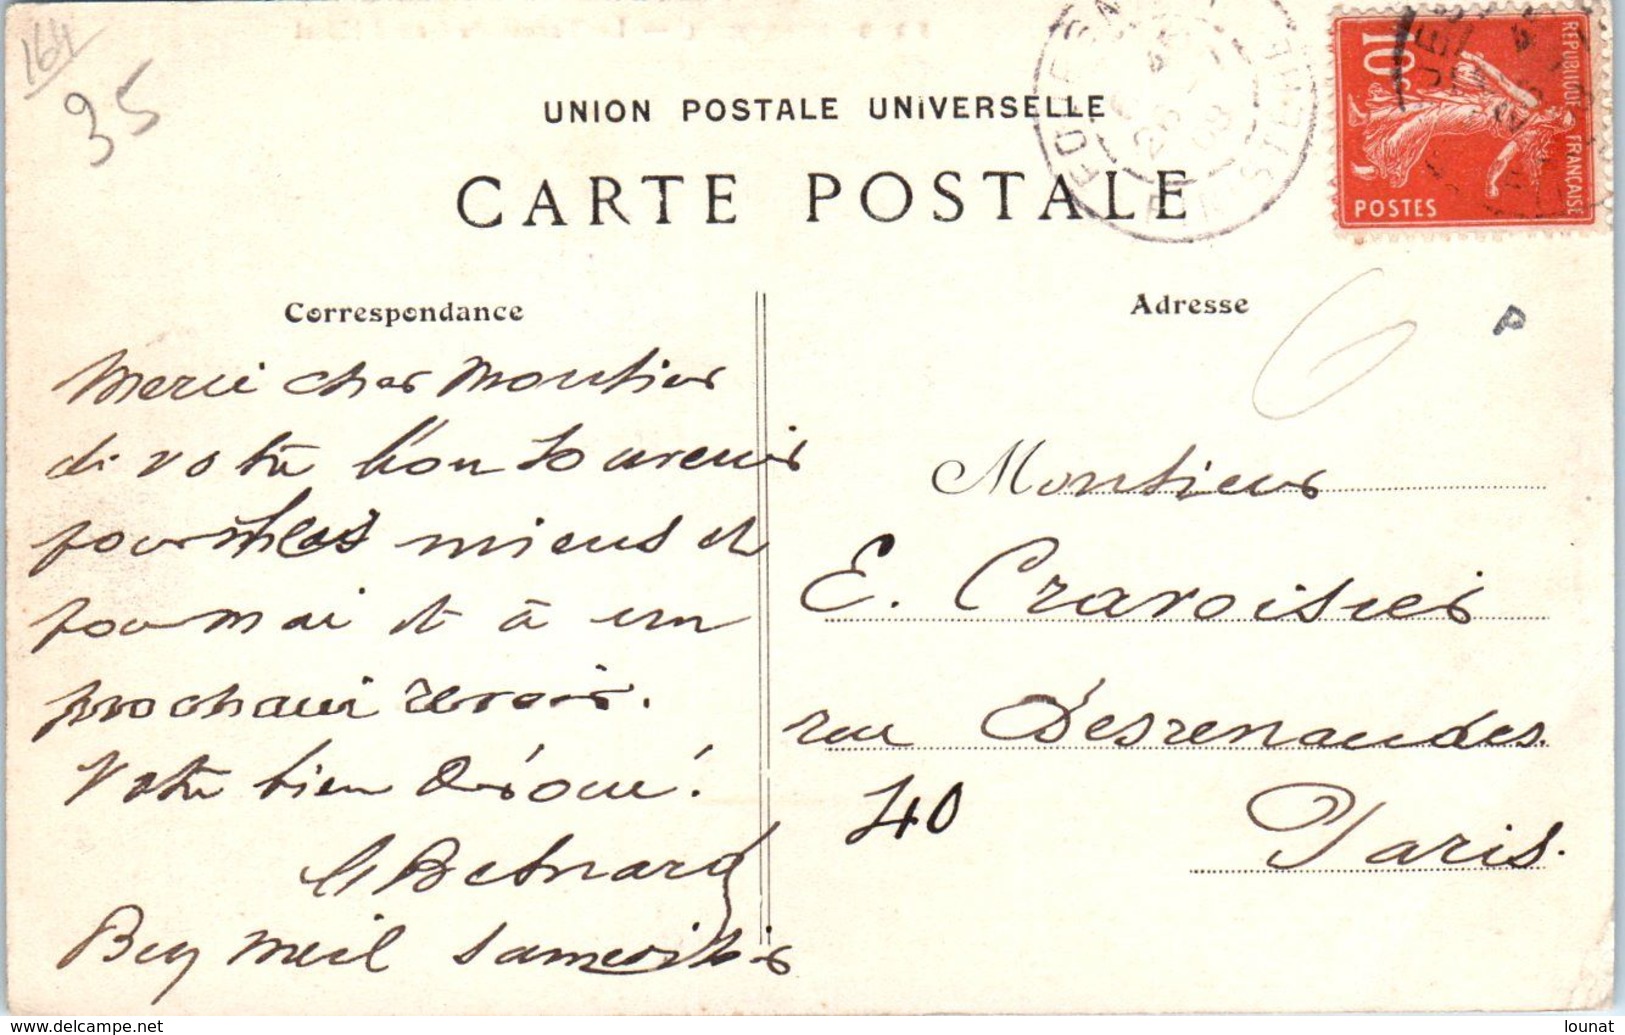 164
35
UNION POSTALE UNIVERSELLE
CARTE POSTALE
10c
REPUBLIQUE FRANÇAISE
POSTES
FOUESNANT
FINISTERE
Correspondance
Adresse
P
Merci cher Monsieur
de votre bon Souvenir
pour les miens et
pour moi et à un
prochain revoir.
Votre bien dévoué!
Besnard
Beg Meil Samedi
Monsieur
E. Cravoisier
rue Desrenaudes.
40
Paris.
www.delcampe.net
lounat